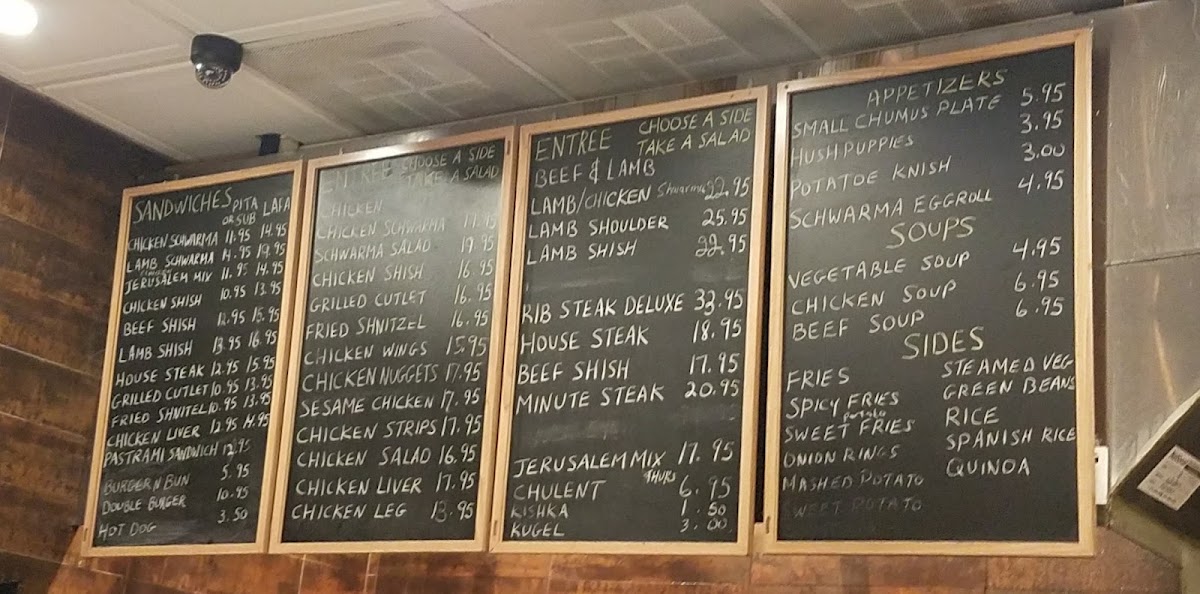 SANDWICHES PITA OR SUB LAFA
CHICKEN SCHWARMA 11.95 14.95
LAMB SCHWARMA 14.95 19.95
JERUSALEM MIX 11.95 14.95
CHICKEN SHISH 10.95 13.95
BEEF SHISH 12.95 15.95
LAMB SHISH 13.95 16.95
HOUSE STEAK 12.95 15.95
GRILLED CUTLET 10.95 13.95
FRIED SHNITEL 10.95 13.95
CHICKEN LIVER 12.95 14.95
PASTRAMI SANDWICH 12.95
BURGER N BUN 5.95
DOUBLE BURGER 10.95
HOT DOG 3.50
ENTREE CHOOSE A SIDE
TAKE A SALAD
CHICKEN
CHICKEN SCHWARMA 17.95
SCHWARMA SALAD 19.95
CHICKEN SHISH 16.95
GRILLED CUTLET 16.95
FRIED SHNITZEL 16.95
CHICKEN WINGS 15.95
CHICKEN NUGGETS 17.95
SESAME CHICKEN 17.95
CHICKEN STRIPS 17.95
CHICKEN SALAD 16.95
CHICKEN LIVER 17.95
CHICKEN LEG 13.95
ENTREE CHOOSE A SIDE
TAKE A SALAD
BEEF & LAMB
LAMB/CHICKEN Shwarma 22.95
LAMB SHOULDER 25.95
LAMB SHISH 22.95
RIB STEAK DELUXE 33.95
HOUSE STEAK 18.95
BEEF SHISH 17.95
MINUTE STEAK 20.95
JERUSALEM MIX 17.95
CHULENT THURS 6.95
KISHKA 1.50
KUGEL 3.00
APPETIZERS
SMALL CHUMUS PLATE 5.95
HUSHPUPPIES 3.95
POTATOE KNISH 3.00
SCHWARMA EGGROLL 4.95
SOUPS
VEGETABLE SOUP 4.95
CHICKEN SOUP 6.95
BEEF SOUP 6.95
SIDES
FRIES
SPICY FRIES
SWEET potato FRIES
ONION RINGS
MASHED POTATO
SWEET POTATO
STEAMED VEG
GREEN BEANS
RICE
SPANISH RICE
QUINOA